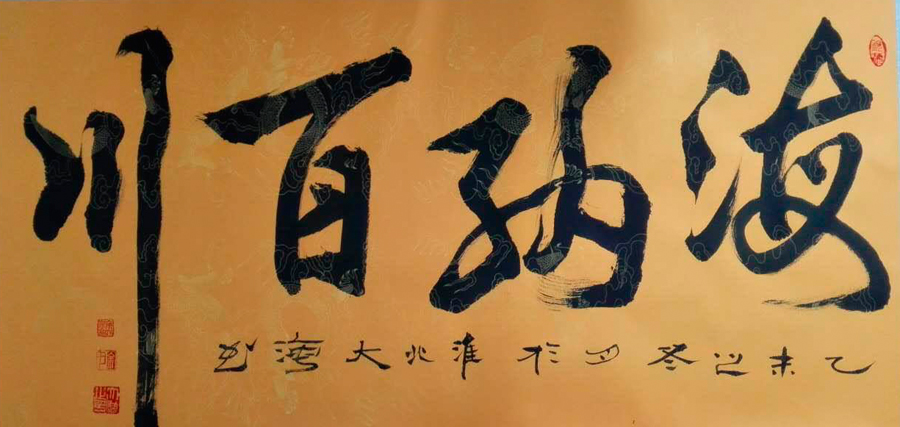 海纳百川
乙未之冬月於淮北大海书